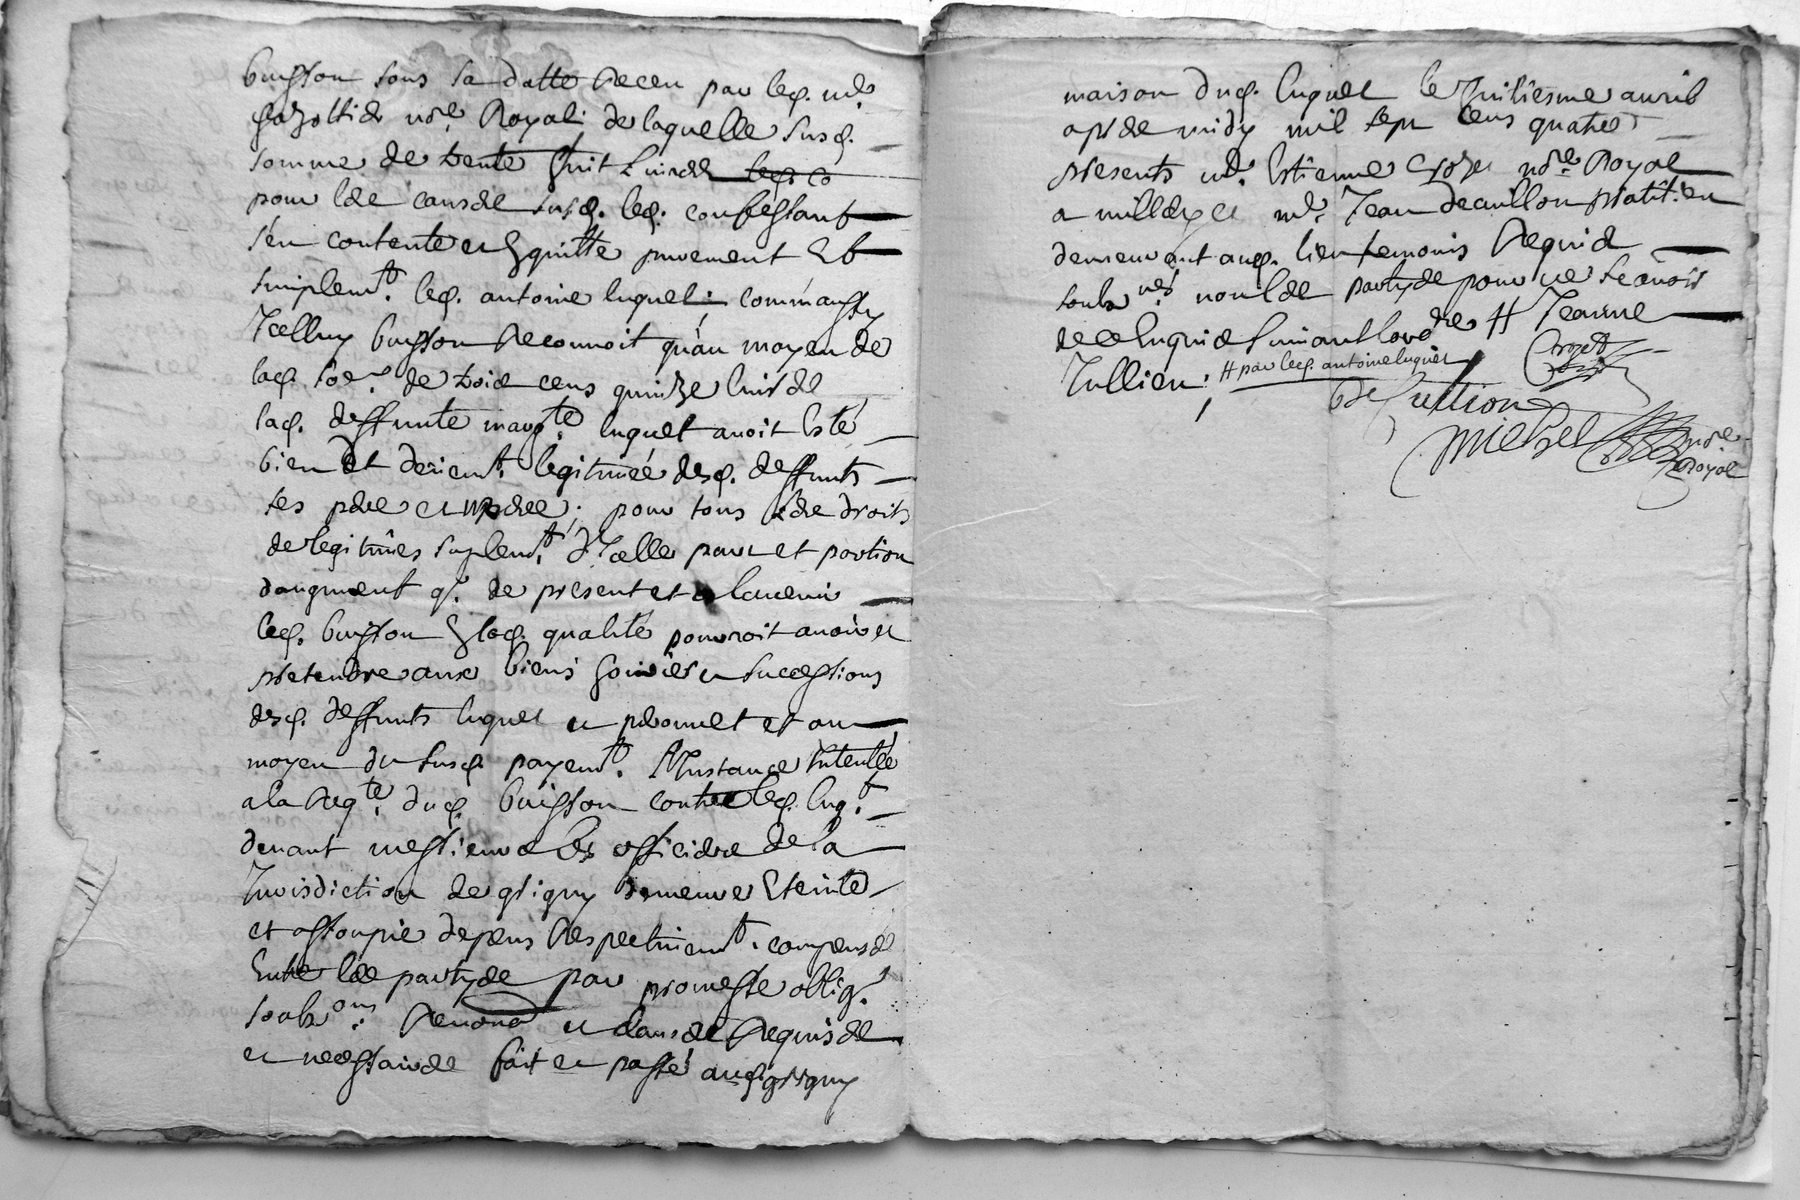 buisson sous sa datte receu par led. me.
notre. Royal: de laquelle susd.
somme de trente huit livres led. co
pour les causes susd. led. confessant
s'en contente et quitte purement et
simplemt. led. antoine luquet; comm'aussy
Icelluy buisson reconnoit qu'au moyen de
lad. soe. de trois cens quinze livres
lad. deffunte margte. luquet avoit esté
bien et deuemt. legitimée desd. deffunts
ses pere et mere; pour tous ses droits
de legitimes suplemt. d'Icelle part et portion
daugment q. de present et a lavenir
led. buisson lad. qualité pourroit avoir et
pretendre aux biens hoiries et successions
desd. deffunts luquet et et au
moyen du susd. payemt. l'Instance Intentée
a la reqte. dud. buisson contre led. luqt.
devant messieurs les officiers de la
Jurisdiction de grigny demeure eteinte
et assoupie depens respectivemt. compensés
entre les partyes par promesse oblig.
soubzons. renonc et clauses requises
et necessaires fait et passé aud. grigny
maison dud. luquet le huitiesme avril
apres midy mil sept cens quatre
presents me. Estienne crozet notre Royal
a me. Jean decullion pratitien
demeurant aud. lieu temoins requis
soubznés non les partyes pour ne scavoir
de ce enquis suivant lordre # Jeanne
Jullien; # par led. antoine luquet
Crozet
decullion
Michel nore
Royal